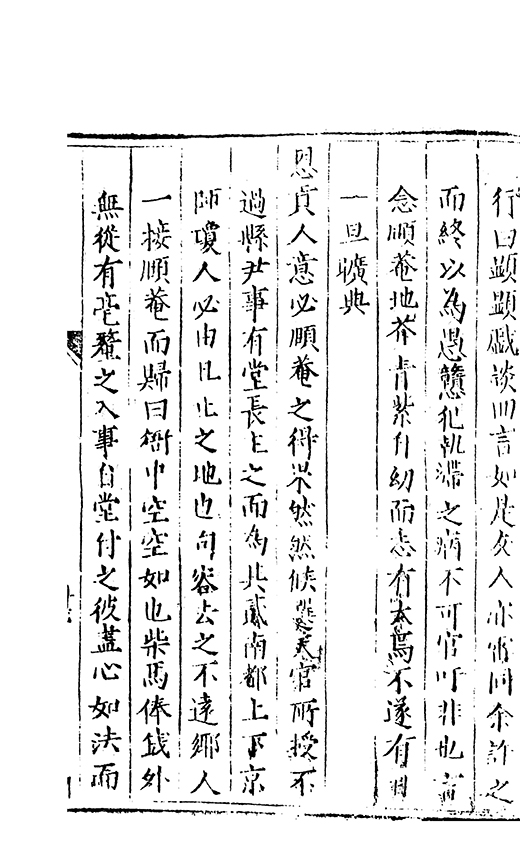 行曰顯顯戲談四言如是友人亦雷同余許之
而終以為愚戇犯執滯之病不可官吁非也
念順菴地芥青紫自幼而志有本焉不遂有
一旦曠典
恩貢人意必順菴之得果然然候選天官所授不
過縣尹事有堂長主之而為其貳南都上下京
師瓊人必由且止之地也句容去之不遠鄉人
一接順菴而歸曰衙中空空如也柴馬俸錢外
無從有毫釐之入事自堂付之彼蓋心如法而